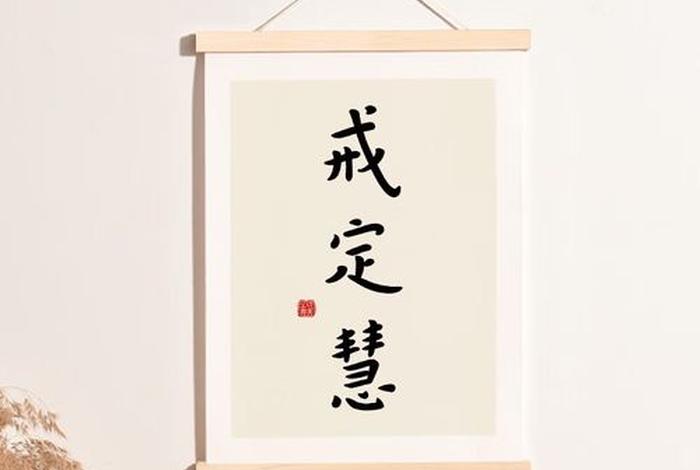 戒定慧